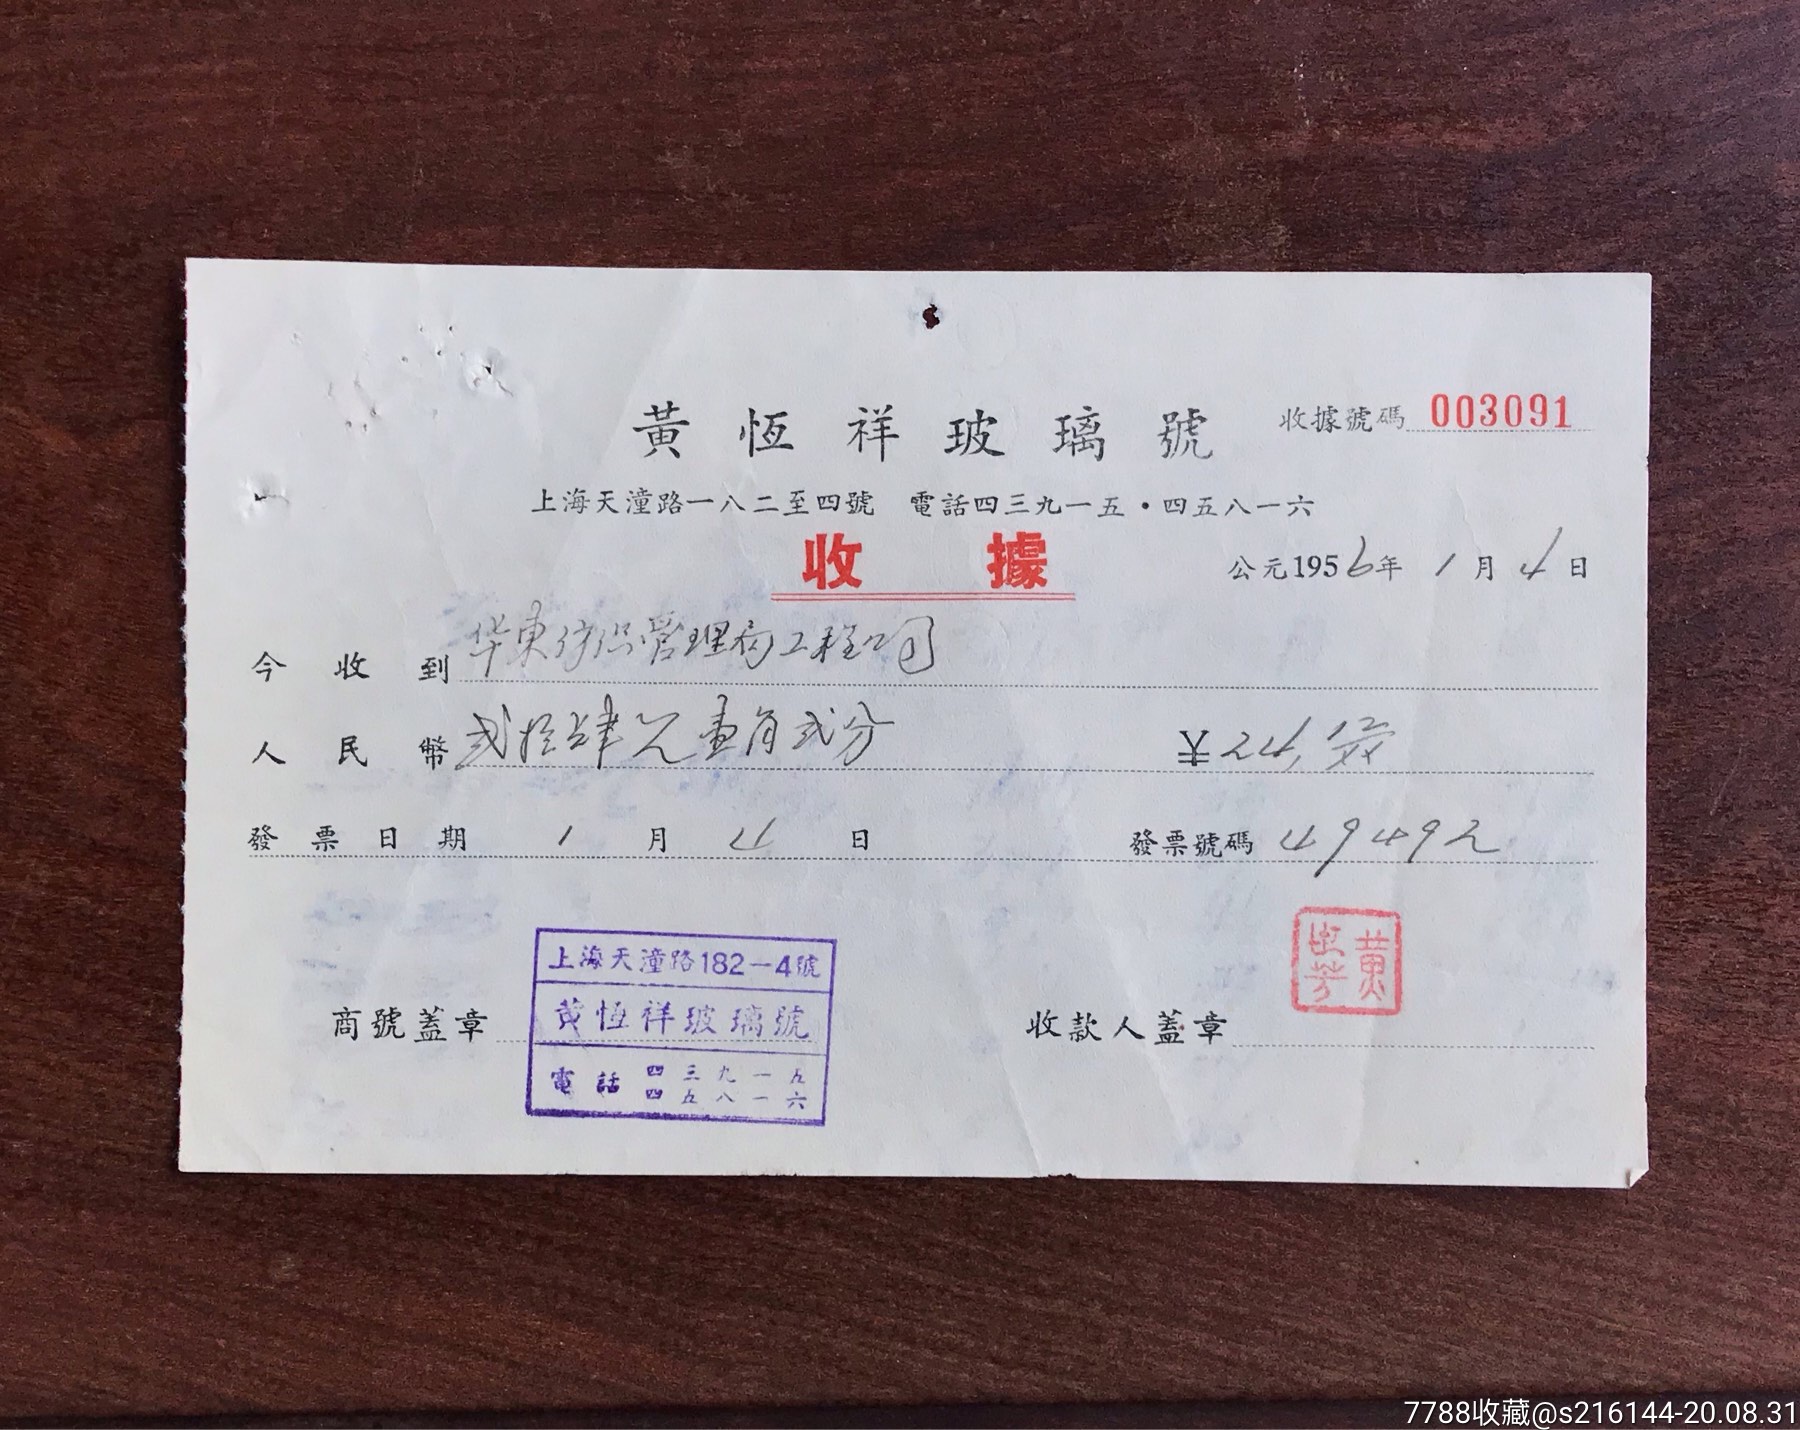 黃恆祥玻璃號
收據號碼 003091
上海天潼路一八二至四號 電話四三九一五・四五八一六
收據
公元1956年 1月4日
今收到 华東纺织管理局工程公司
人民幣 弍拾肆元壹角弍分 24.12
發票日期 1月4日 發票號碼 49492
上海天潼路182-4號
黃恆祥玻璃號
電話 四三九一五
四五八一六
商號蓋章
收款人蓋章
黃
芳
7788收藏@s216144-20.08.31